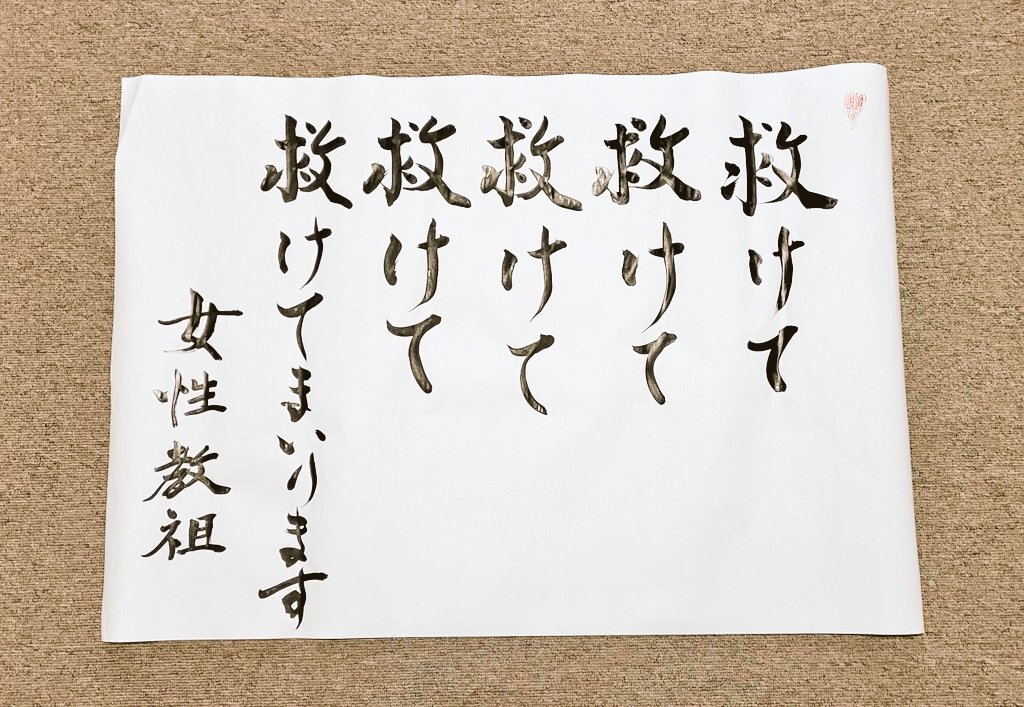 救けて
救けて
救けて
救けて
救けてまいります
女性教祖